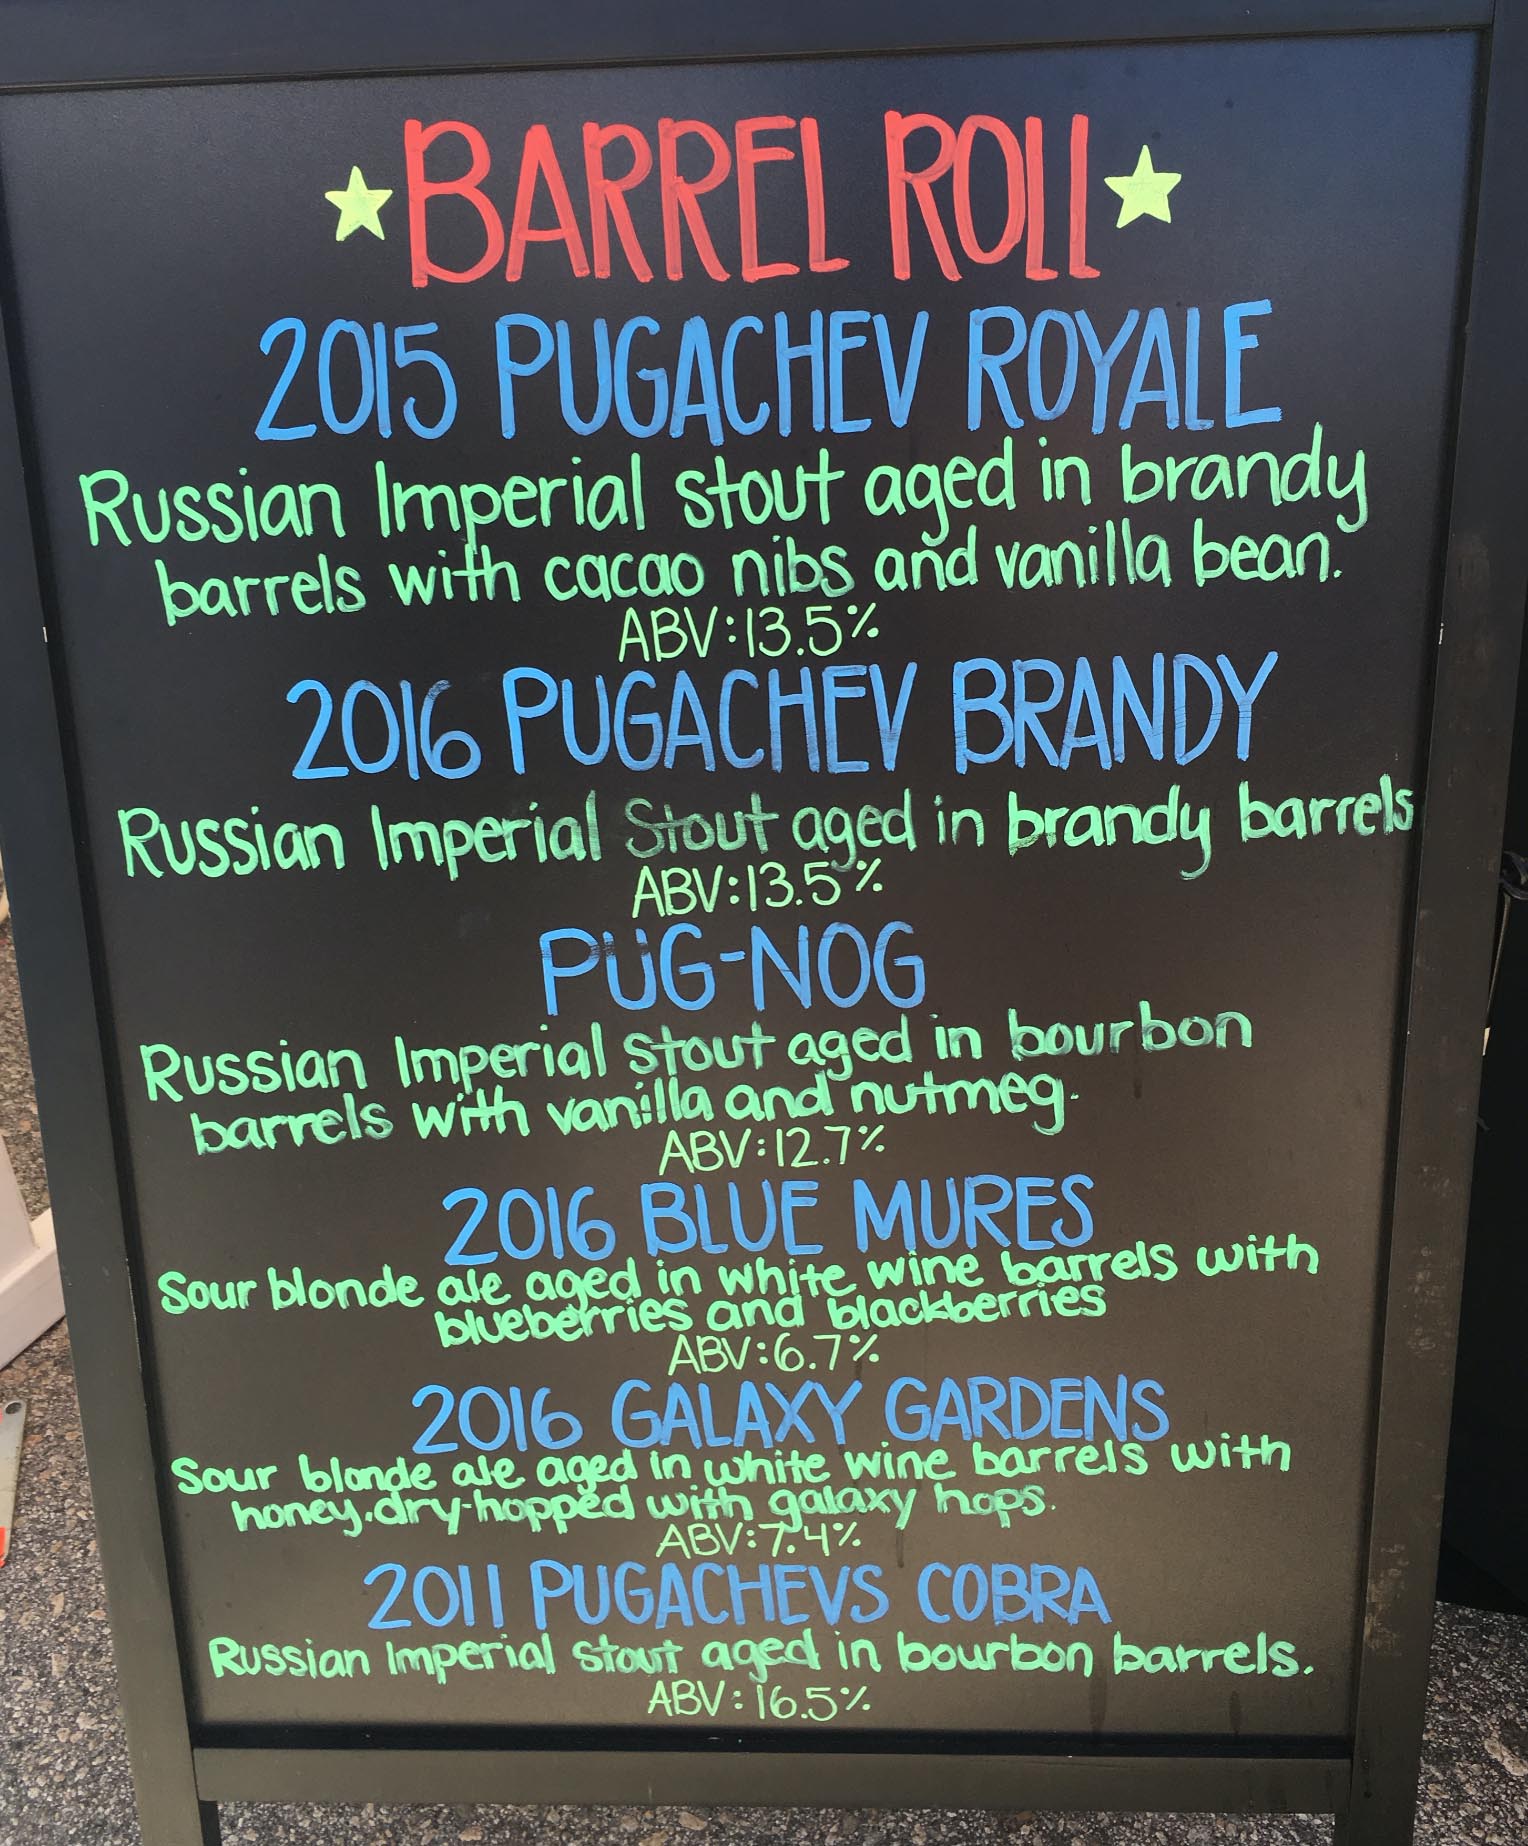 BARREL ROLL
2015 PUGACHEV ROYALE
Russian Imperial stout aged in brandy
barrels with cacao nibs and vanilla bean.
ABV:13.5%
2016 PUGACHEV BRANDY
Russian Imperial Stout aged in brandy barrels
ABV:13.5%
PUG-NOG
Russian Imperial stout aged in bourbon
barrels with vanilla and nutmeg.
ABV:12.7%
2016 BLUE MURES
Sour blonde ale aged in white wine barrels with
blueberries and blackberries
ABV:6.7%
2016 GALAXY GARDENS
Sour blonde ale aged in white wine barrels with
honey.dry-hopped with galaxy hops.
ABV:7.4%
2011 PUGACHEVS COBRA
Russian Imperial stout aged in bourbon barrels.
ABV:16.5%